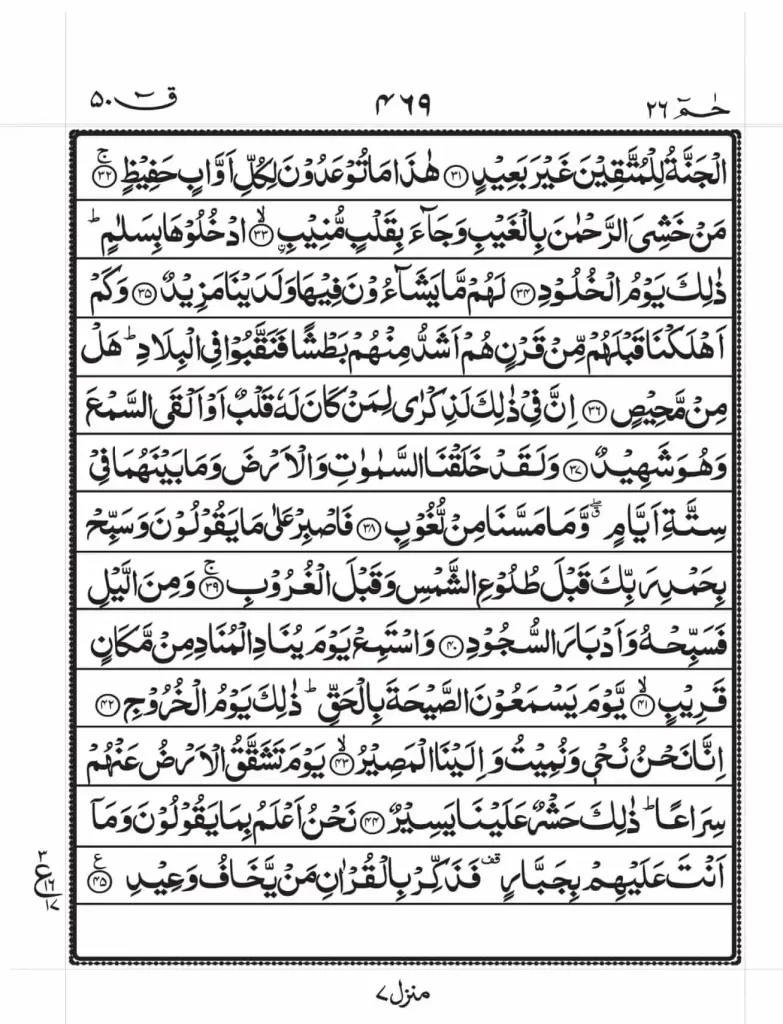 حٰمٓ ۲۶ ۴۶۹ قٓ ۵۰
الۡجَنَّةُ لِلۡمُتَّقِيۡنَ غَيۡرَ بَعِيۡدٍ ﴿۳۱﴾ هٰذَا مَا تُوۡعَدُوۡنَ لِكُلِّ اَوَّابٍ حَفِيۡظٍ ۚ﴿۳۲﴾
مَنۡ خَشِىَ الرَّحۡمٰنَ بِالۡغَيۡبِ وَجَآءَ بِقَلۡبٍ مُّنِيۡبِ ۙ﴿۳۳﴾ اۨدۡخُلُوۡهَا بِسَلٰمٍ ؕ
ذٰلِكَ يَوۡمُ الۡخُلُوۡدِ ﴿۳۴﴾ لَهُمۡ مَّا يَشَآءُوۡنَ فِيۡهَا وَلَدَيۡنَا مَزِيۡدٌ ﴿۳۵﴾ وَكَمۡ
اَهۡلَكۡنَا قَبۡلَهُمۡ مِّنۡ قَرۡنٍ هُمۡ اَشَدُّ مِنۡهُمۡ بَطۡشًا فَنَقَّبُوۡا فِى الۡبِلَادِ ؕ هَلۡ
مِنۡ مَّحِيۡصٍ ﴿۳۶﴾ اِنَّ فِىۡ ذٰلِكَ لَذِكۡرٰى لِمَنۡ كَانَ لَهٗ قَلۡبٌ اَوۡ اَلۡقَى السَّمۡعَ
وَهُوَ شَهِيۡدٌ ﴿۳۷﴾ وَلَقَدۡ خَلَقۡنَا السَّمٰوٰتِ وَالۡاَرۡضَ وَمَا بَيۡنَهُمَا فِىۡ
سِتَّةِ اَيَّامٍ ۖ ۗ وَّمَا مَسَّنَا مِنۡ لُّغُوۡبٍ ﴿۳۸﴾ فَاصۡبِرۡ عَلٰى مَا يَقُوۡلُوۡنَ وَسَبِّحۡ
بِحَمۡدِ رَبِّكَ قَبۡلَ طُلُوۡعِ الشَّمۡسِ وَقَبۡلَ الۡغُرُوۡبِ ۚ﴿۳۹﴾ وَمِنَ الَّيۡلِ
فَسَبِّحۡهُ وَاَدۡبَارَ السُّجُوۡدِ ﴿۴۰﴾ وَاسۡتَمِعۡ يَوۡمَ يُنَادِ الۡمُنَادِ مِنۡ مَّكَانٍ
قَرِيۡبٍ ۙ﴿۴۱﴾ يَّوۡمَ يَسۡمَعُوۡنَ الصَّيۡحَةَ بِالۡحَقِّ ؕ ذٰلِكَ يَوۡمُ الۡخُرُوۡجِ ﴿۴۲﴾
اِنَّا نَحۡنُ نُحۡىٖ وَنُمِيۡتُ وَاِلَيۡنَا الۡمَصِيۡرُ ۙ﴿۴۳﴾ يَوۡمَ تَشَقَّقُ الۡاَرۡضُ عَنۡهُمۡ
سِرَاعًا ؕ ذٰلِكَ حَشۡرٌ عَلَيۡنَا يَسِيۡرٌ ﴿۴۴﴾ نَحۡنُ اَعۡلَمُ بِمَا يَقُوۡلُوۡنَ وَمَاۤ
اَنۡتَ عَلَيۡهِمۡ بِجَبَّارٍ قف فَذَكِّرۡ بِالۡقُرۡاٰنِ مَنۡ يَّخَافُ وَعِيۡدِ ﴿۴۵﴾ ع
۳
ع ۱۶
۱۷
منزل ۷